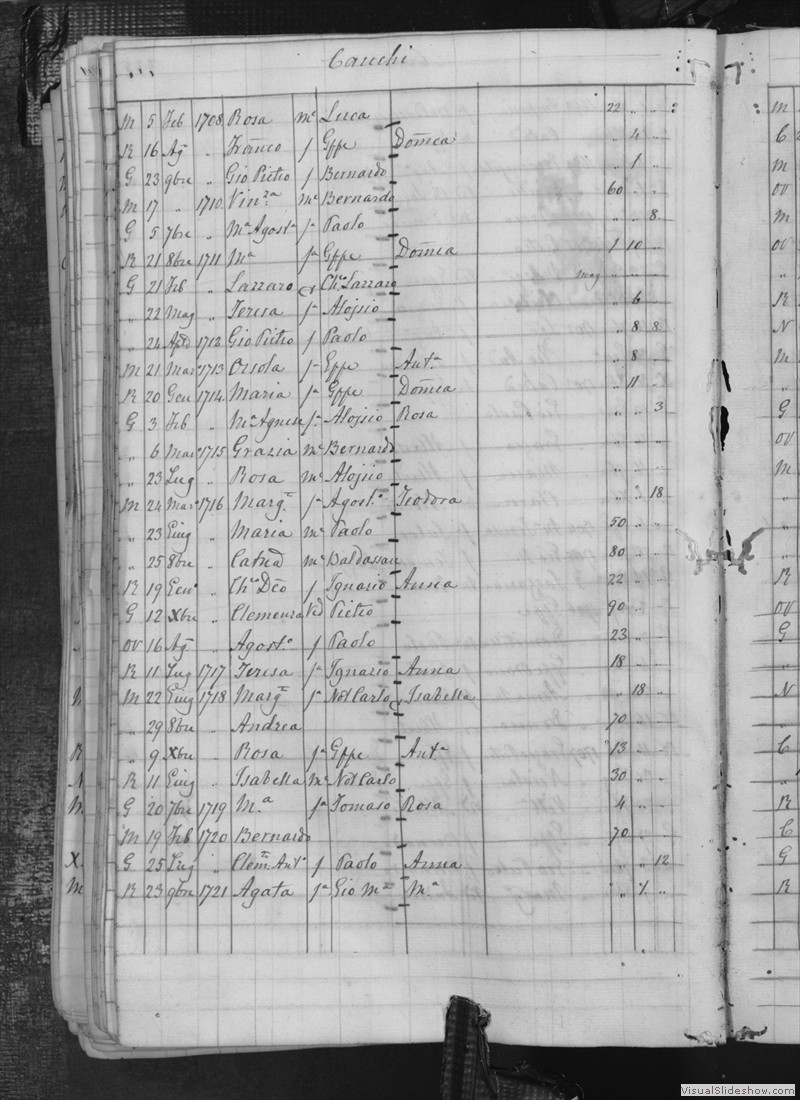 Cauchi
M 5 Feb 1708 Rosa mᵉ Luca 22 „ „
R 16 Ag „ Franco f Gppe Domca „ 4 „
G 23 9bre „ Gio Pietro f Bernardo „ 1 „
M 17 „ 1710 Vinzᵃ mᵉ Bernardo 60 „ „
G 5 7bre „ Mᵃ Agostᵃ fᵃ Paolo „ „ 8
R 21 8bre 1711 Mᵃ fᵃ Gppe Domca 1 10 „
G 21 Feb „ Lazzaro Chᵒ Lazzaro „ „ „
„ 22 Mag „ Teresa fᵃ Alojsio „ 6 „
„ 24 1712 Gio Pietro f Paolo „ 8 8
M 21 Mar 1713 Orsola fᵃ Gppe Antᵃ „ 8 „
R 20 Gen 1714 Maria fᵃ Gppe Domca „ 11 „
G 3 Feb „ Mᵃ Agnese fᵃ Alojsio Rosa „ „ 3
„ 6 Mar 1715 Grazia mᵉ Bernardo „ „ „
„ 23 Lug „ Rosa mᵉ Alojsio „ „ „
M 24 Mar 1716 Margᵗᵃ fᵃ Agostᵒ Teodora „ „ 18
„ 23 Giug „ Maria mᵉ Paolo 50 „ „
„ 25 8bre „ mᵉ Baldassare 80 „ „
R 19 Genᵒ „ Chᵒ Deo f Ignazio Anna 22 „ „
G 12 Xbre „ Clemenza Vd Pietro 90 „ „
OV 16 Ag „ Agostᵒ f Paolo 23 „ „
R 11 Lug 1717 Teresa fᵃ Ignazio Anna 18 „ „
N M 22 Giug 1718 Margᵗᵃ fᵃ Not Carlo Isabella „ 18 „
„ 29 8bre „ Andrea 70 „ „
R „ 9 Xbre „ Rosa fᵃ Gppe Antᵃ 13 „ „
R 11 Giug „ Isabella mᵉ Not Carlo 30 „ „
M G 20 7bre 1719 Mᵃ fᵃ Tomaso Rosa 4 „ „
M 19 Feb 1720 Bernardo 70 „ „
X G 25 Lug „ Clem Antᵒ f Paolo Anna „ „ 12
M R 23 9bre 1721 Agata fᵃ Gio Mᵃ Mᵃ „ „
M
C
M
OV
M
OV
„
R
N
M
G
OV
M
R
OV
G
N
C
R
C
G
R
VisualSlideshow.com